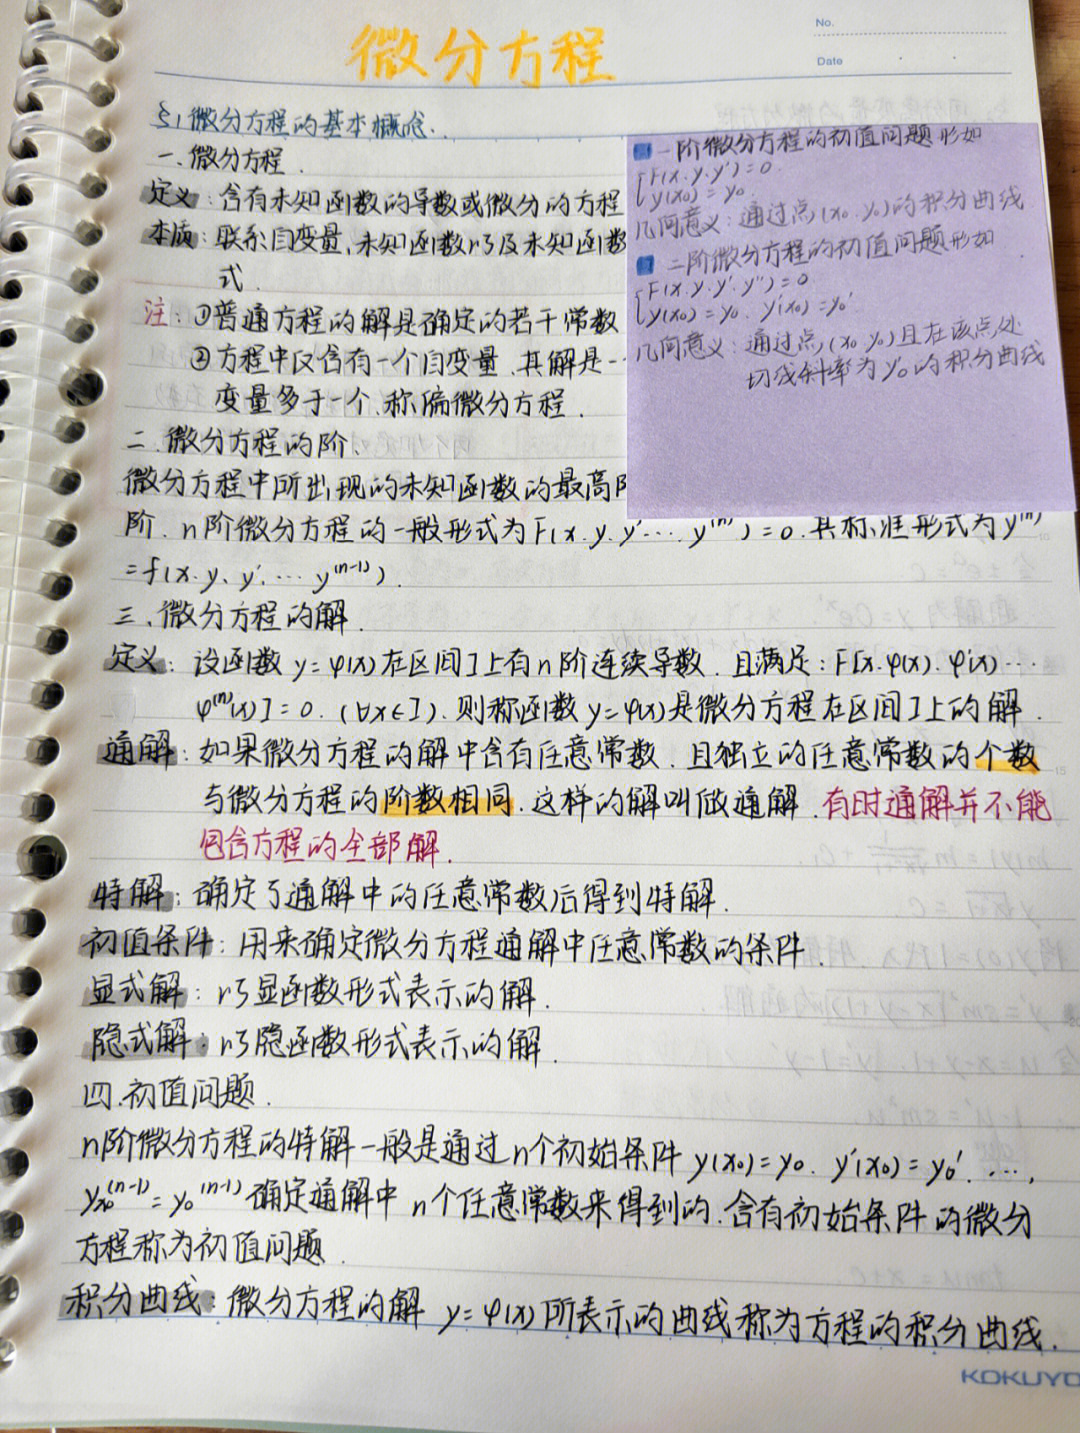 No.
Date
微分方程
§1 微分方程的基本概念.
一.微分方程.
定义:含有未知函数的导数或微分的方程
本质:联系自变量、未知函数以及未知函数
式.
注:①普通方程的解是确定的若干常数
②方程中仅含有一个自变量.其解是一
变量多于一个、称偏微分方程.
二.微分方程的阶、
微分方程中所出现的未知函数的最高阶
阶. n阶微分方程的一般形式为F(x.y.y′… y⁽ⁿ⁾)=0.其标准形式为y⁽ⁿ⁾
=f(x.y、y′.… y⁽ⁿ⁻¹⁾).
三、微分方程的解.
定义:设函数 y=φ(x)在区间I上有n阶连续导数.且满足:F[x.φ(x).φ′(x)…
φ⁽ⁿ⁾(x)]=0. (∀x∈I).则称函数y=φ(x)是微分方程在区间I上的解.
通解:如果微分方程的解中含有任意常数.且独立的任意常数的个数
与微分方程的阶数相同.这样的解叫做通解.有时通解并不能
包含方程的全部解.
特解:确定了通解中的任意常数后得到特解.
初值条件:用来确定微分方程通解中任意常数的条件.
显式解:以显函数形式表示的解.
隐式解:以隐函数形式表示的解.
四.初值问题.
n阶微分方程的特解一般是通过n个初始条件 y(x₀)=y₀. y′(x₀)=y₀′. …,
yₓ₀⁽ⁿ⁻¹⁾=y₀⁽ⁿ⁻¹⁾确定通解中 n个任意常数来得到的.含有初始条件的微分
方程称为初值问题.
积分曲线:微分方程的解 y=φ(x)所表示的曲线称为方程的积分曲线.
KOKUYO
一阶微分方程的初值问题形如
{F(x.y.y′)=0
y(x₀)=y₀.
几何意义:通过点(x₀.y₀)的积分曲线
二阶微分方程的初值问题形如
{F(x.y.y′.y″)=0
y(x₀)=y₀. y′(x₀)=y₀′
几何意义:通过点(x₀ y₀)且在该点处
切线斜率为y₀′的积分曲线